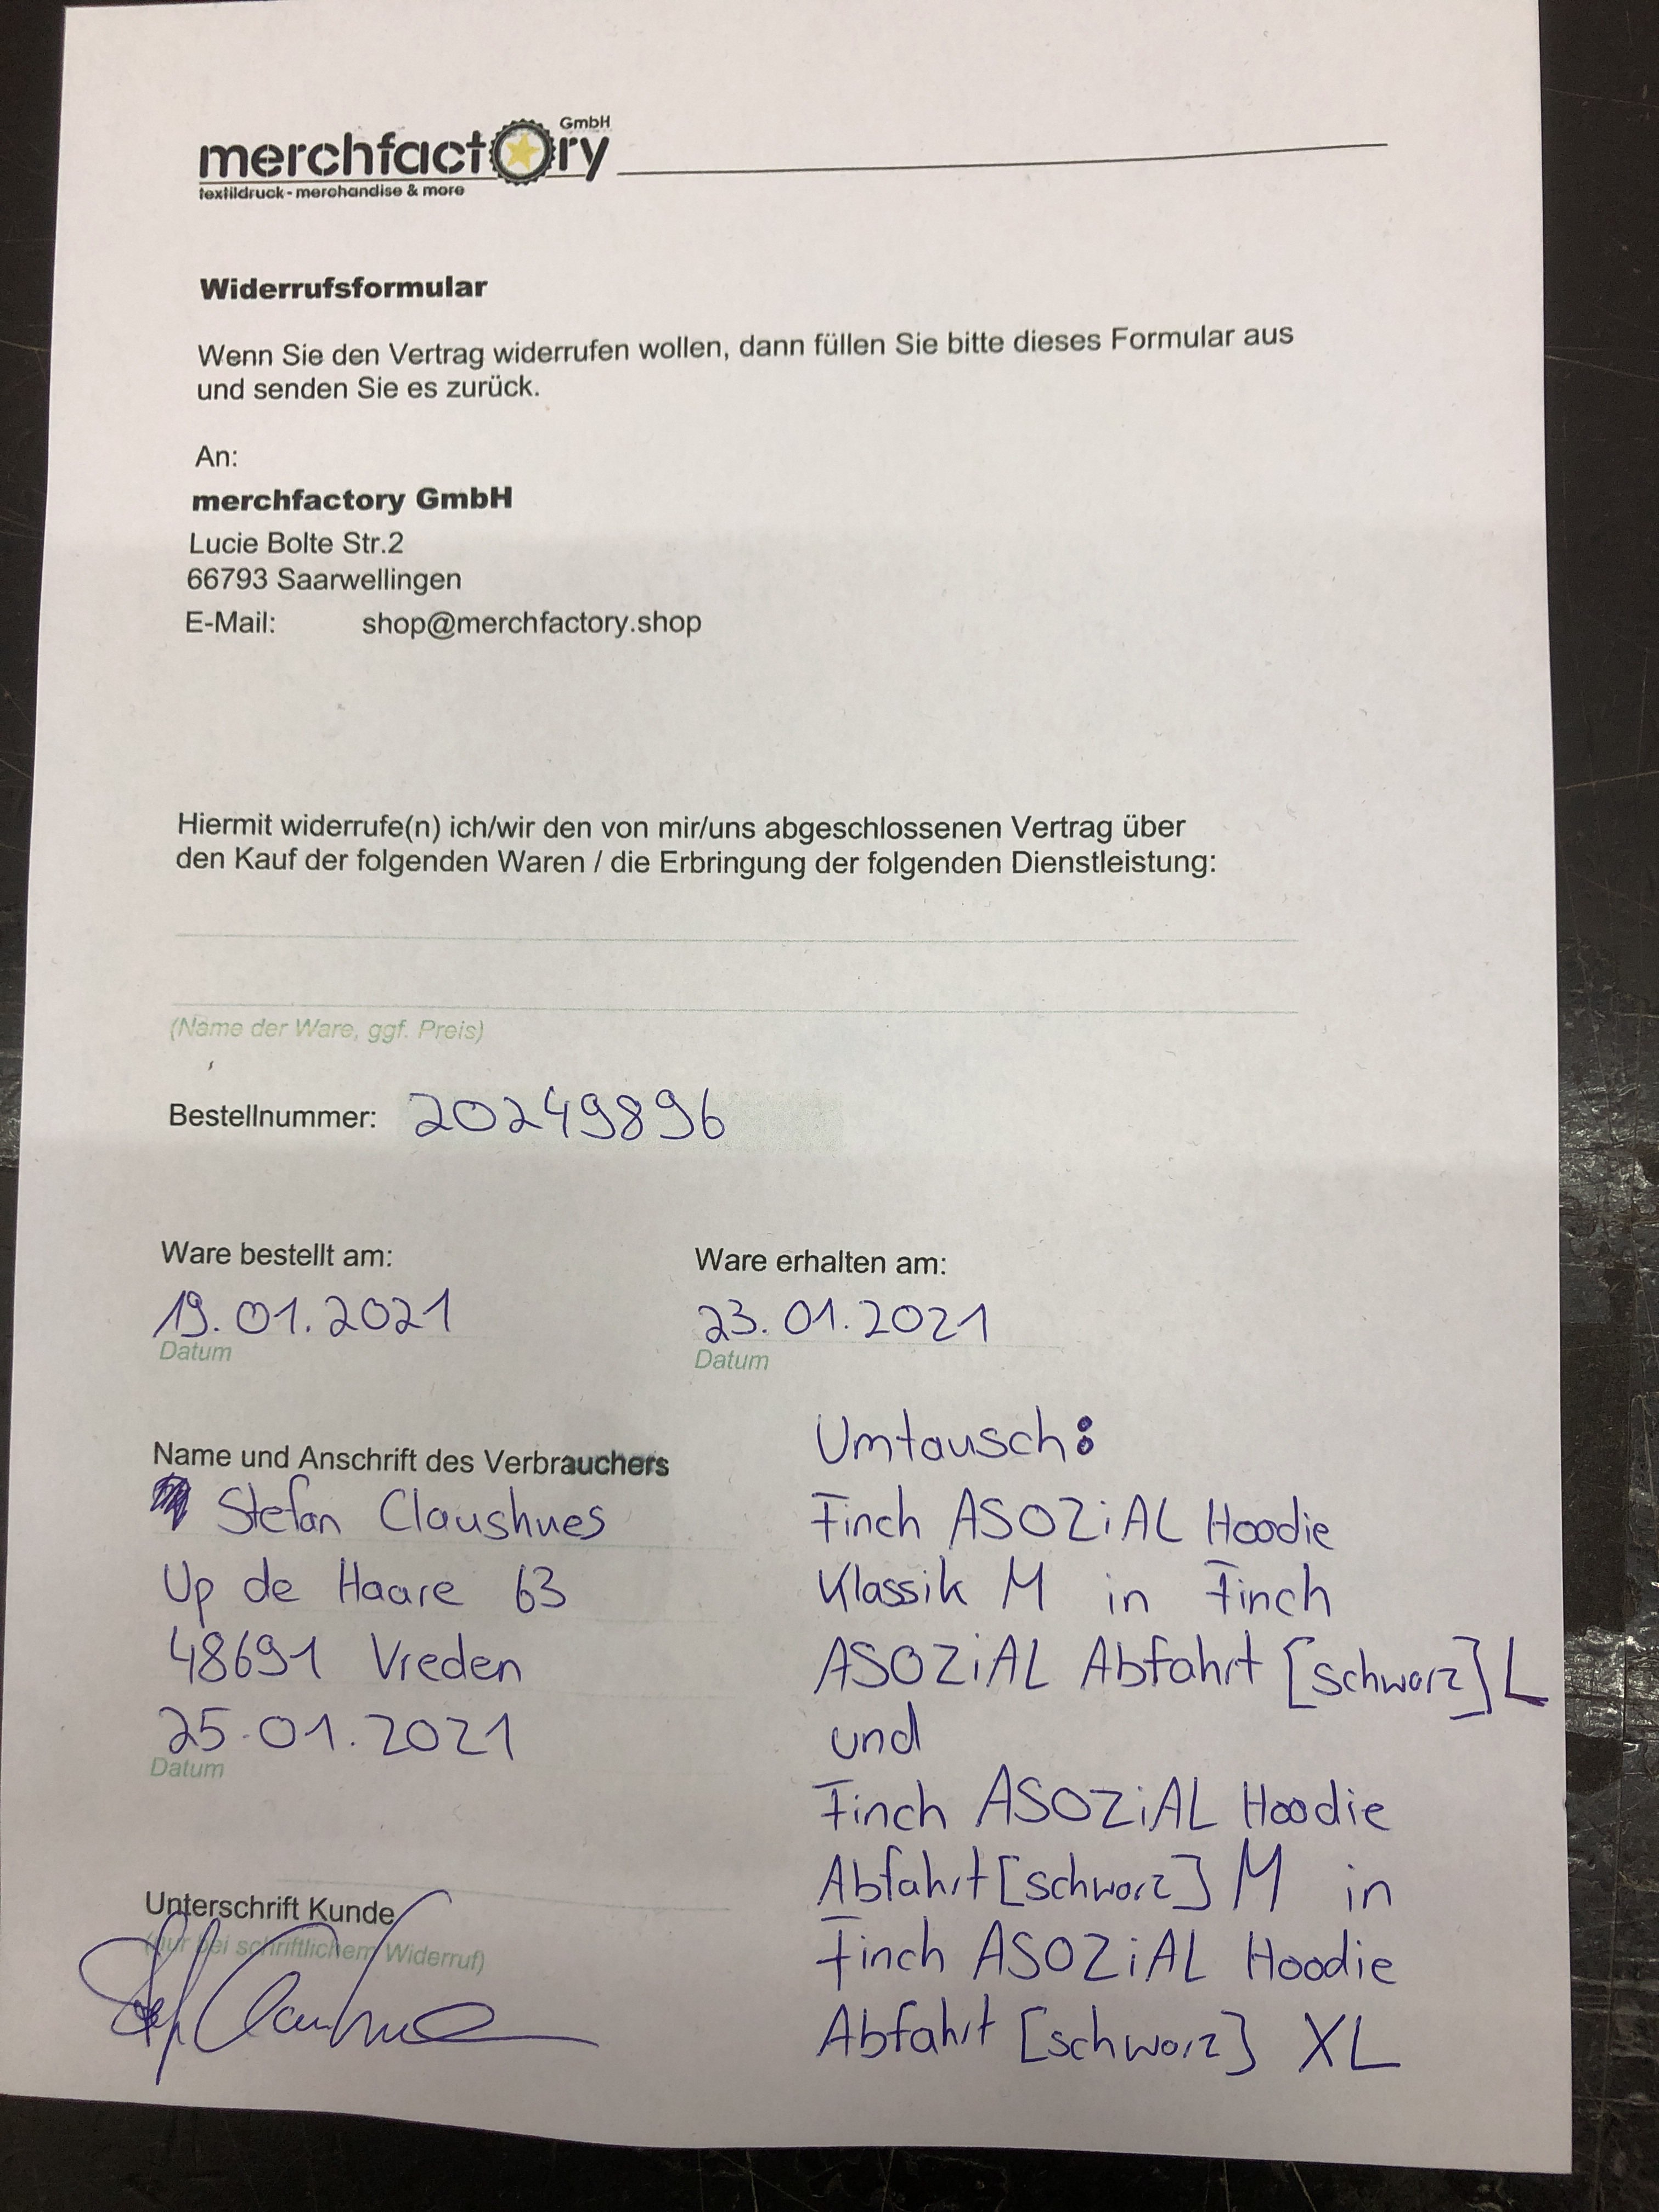 merchfactory GmbH
textildruck - merchandise & more
Widerrufsformular
Wenn Sie den Vertrag widerrufen wollen, dann füllen Sie bitte dieses Formular aus
und senden Sie es zurück.
An:
merchfactory GmbH
Lucie Bolte Str.2
66793 Saarwellingen
E-Mail: shop@merchfactory.shop
Hiermit widerrufe(n) ich/wir den von mir/uns abgeschlossenen Vertrag über
den Kauf der folgenden Waren / die Erbringung der folgenden Dienstleistung:
(Name der Ware, ggf. Preis)
Bestellnummer: 20249896
Ware bestellt am:
19.01.2021
Datum
Ware erhalten am:
23.01.2021
Datum
Name und Anschrift des Verbrauchers
Stefan Claushues
Up de Haare 63
48691 Vreden
25.01.2021
Datum
Unterschrift Kunde
(nur bei schriftlichem Widerruf)
Umtausch:
Finch ASOZiAL Hoodie
Klassik M in Finch
ASOZiAL Abfahrt [schwarz] L
und
Finch ASOZiAL Hoodie
Abfahrt [schwarz] M in
Finch ASOZiAL Hoodie
Abfahrt [schwarz] XL